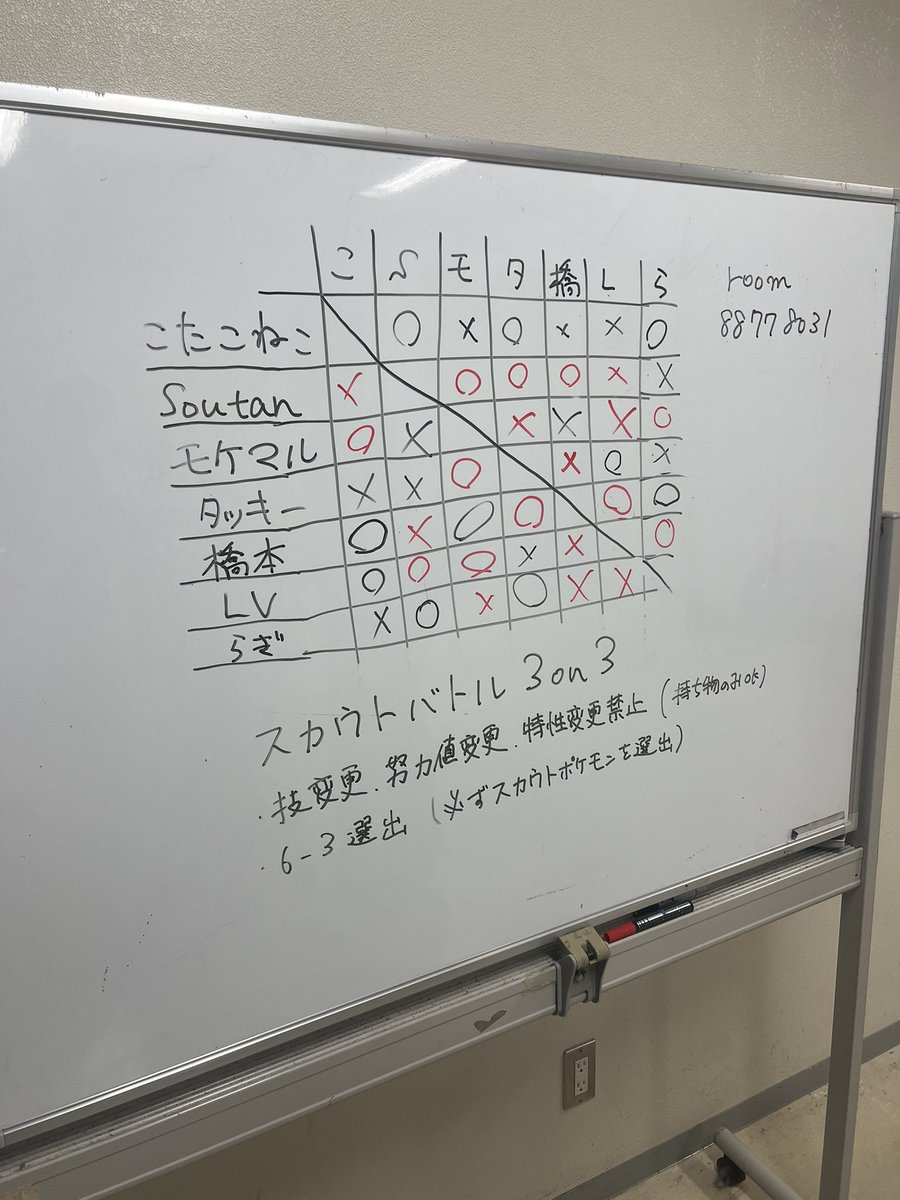 こ S モ タ 橋 L ら
こたこねこ ○ × ○ × × ○
Soutan × ○ ○ ○ × ×
モケマル ○ × × × × ○
タッキー × × ○ × ○ ×
橋本 ○ × ○ ○ ○ ○
LV ○ ○ ○ × × ○
らぎ × ○ × ○ × ×
room
88778031
スカウトバトル 3on3
・技変更.努力値変更.特性変更禁止(持ち物のみok)
・6-3選出(必ずスカウトポケモンを選出)